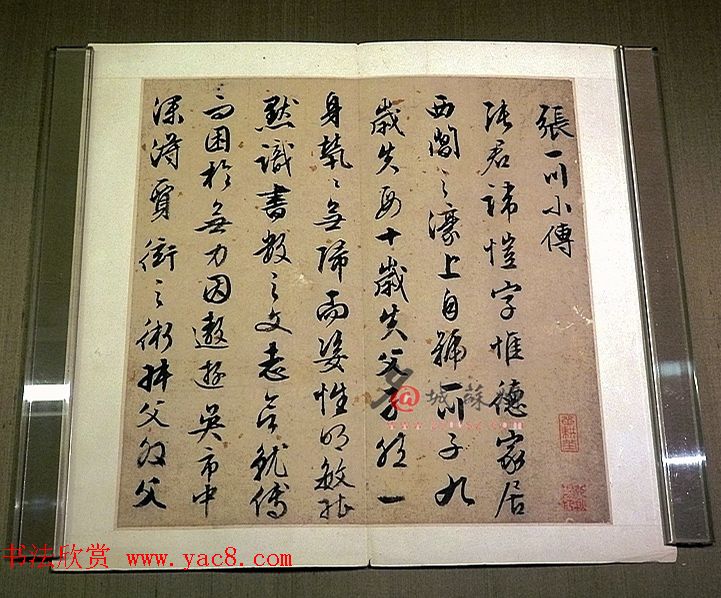 張一川小傳
張君諱愷字惟德家居
西閶之濠上自號一川子九
歲失母十歲失父孑然一
身煢〻無歸而姿性明敏於
默識書數之文志欲就傅
而困於無力因遨遊吳市中
深得賈衒之術拜父為父
名@城蘇
书法欣赏 www.yac8.com